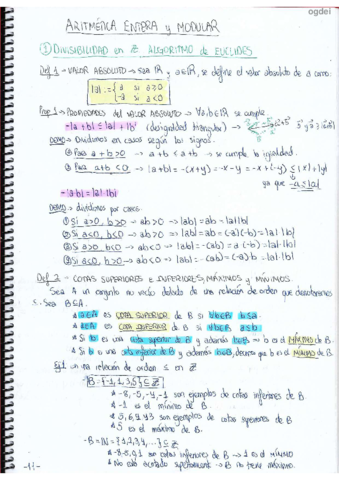 ogdei
ARITMÉTICA ENTERA y MODULAR
① DIVISIBILIDAD en ℤ. ALGORITMO de EUCLIDES
Def 1 → VALOR ABSOLUTO → Sea ℝ y a∈ℝ, se define el valor absoluto de a como:
|a| = { a si a≥0
-a si a<0
Prop 1 → PROPIEDADES del VALOR ABSOLUTO → ∀a,b∈ℝ se cumple.
-|a+b| ≤ |a|+|b| (desigualdad triangular) →
DEMO → Dividimos en casos según los signos.
① Para a+b>0 → a+b<a+b → se cumple la igualdad.
② Para a+b<0 → |a+b| = -(x+y) = -x-y = -x+(-y) ≤ |x|+|y|
ya que -a≤|a|
-|a·b| = |a|·|b|
DEMO → dividimos por casos.
① Si a>0, b>0 → ab>0 → |ab| = ab = |a||b|
② Si a<0, b<0 → ab>0 → |ab| = ab = (-a)(-b) = |a|·|b|
③ Si a>0, b<0 → ab<0 → |ab| = -(ab) = a(-b) = |a|·|b|
④ Si a<0, b>0 → ab<0 → |ab| = -(ab) = (-a)b = |a|·|b|
Def 2 → COTAS SUPERIORES e INFERIORES, MÁXIMOS y MÍNIMOS.
Sea A un conjunto no vacío dotado de una relación de orden que denotaremos
≤. Sea B⊆A.
a∈A es COTA SUPERIOR de B si ∀b∈B b≤a.
a∈A es COTA INFERIOR de B si ∀b∈B a≤b.
Si b es una cota superior de B y además b∈B → b es el MÁXIMO de B.
Si b es una cota inferior de B y además b∈B, decimos que b es el MÍNIMO de B.
Ej 1 → una relación de orden ≤ en ℤ
-B = {-1,1,3,5} ⊆ ℤ
-8, -5, -4, -1 son ejemplos de cotas inferiores de B
-1 es el mínimo de B.
5, 6, 7 y 43 son ejemplos de cotas superiores de B
5 es el máximo de B.
-B = ℕ = {1,2,3,4,...} ⊆ ℤ
-8, -5, 0, 1 son cotas inferiores de B → 1 es el mínimo
No está acotado superiormente → B no tiene máximo.
-1-